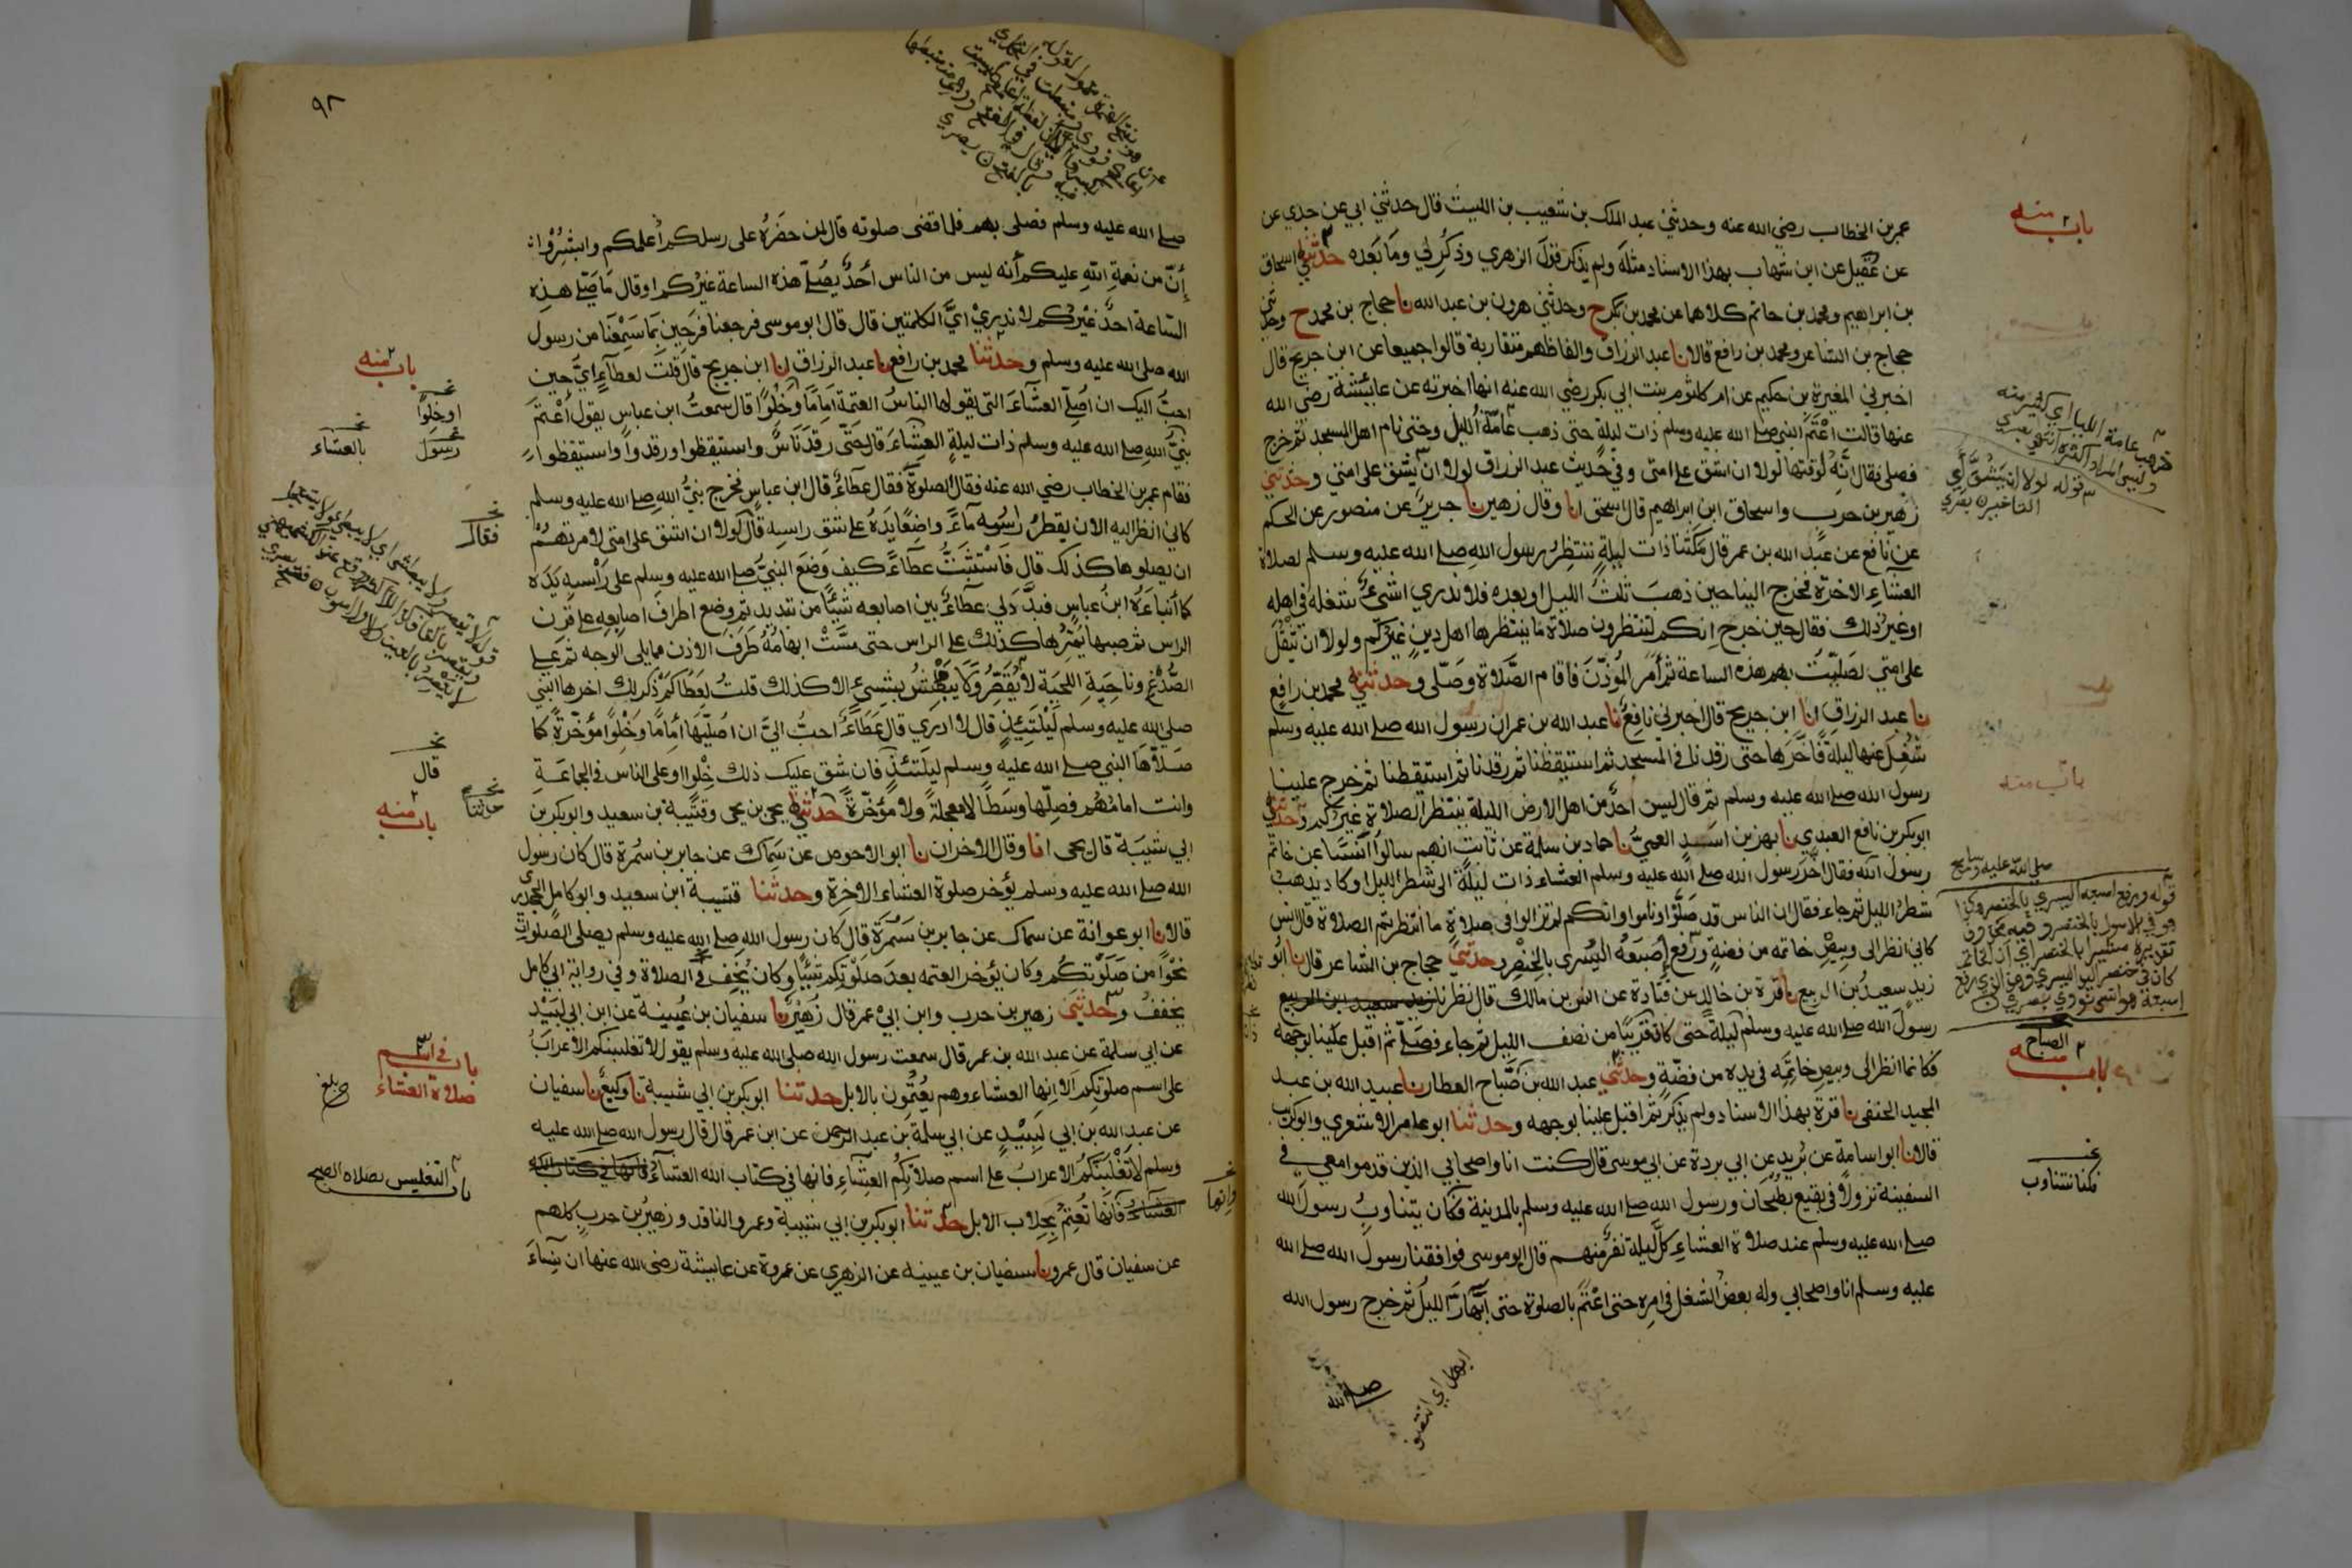 باب منه
عمر بن الخطاب رضي الله عنه وحدثني عبد الملك بن شعيب بن الليث قال حدثني ابي عن جدي عن
عن عقيل عن ابن شهاب بهذا الاسناد مثله ولم يذكر قول الزهري وذكر لي وما بعده حدثني اسحاق
بن ابراهيم ومحمد بن حاتم كلاهما عن محمد بن بكر ح وحدثني هرون بن عبد الله نا حجاج بن محمد ح وحدثني
حجاج بن الشاعر ومحمد بن رافع قالا نا عبد الرزاق والفاظهم متقاربة قالوا جميعا عن ابن جريج قال
اخبرني المغيرة بن حكيم عن ام كلثوم بنت ابي بكر رضي الله عنه انها اخبرته عن عايشة رضي الله
عنها قالت اعتم النبي صلى الله عليه وسلم ذات ليلة حتى ذهب عامة الليل وحتى نام اهل المسجد ثم خرج
فصلى فقال انه لوقتها لولا ان اشق على امتي وفي حديث عبد الرزاق لولا ان يشق على امتي وحدثني
زهير بن حرب واسحاق ابن ابراهيم قال اسحق انا وقال زهير نا جرير عن منصور عن الحكم
عن نافع عن عبد الله بن عمر قال مكثنا ذات ليلة ننتظر رسول الله صلى الله عليه وسلم لصلاة
العشاء الاخرة فخرج الينا حين ذهب ثلث الليل او بعده فلا ندري اشيء شغله في اهله
او غير ذلك فقال حين خرج انكم لتنتظرون صلاة ما ينتظرها اهل دين غيركم ولولا ان تثقل
على امتي لصليت بهم هذه الساعة ثم امر المؤذن فاقام الصلاة وصلى وحدثني محمد بن رافع
نا عبد الرزاق انا ابن جريج قال اخبرني نافع نا عبد الله بن عمر ان رسول الله صلى الله عليه وسلم
شغل عنها ليلة فاخرها حتى رقدنا في المسجد ثم استيقظنا ثم رقدنا ثم استيقظنا ثم خرج علينا
رسول الله صلى الله عليه وسلم ثم قال ليس احد من اهل الارض الليلة ينتظر الصلاة غيركم وحدثني
ابو بكر بن نافع العبدي نا بهز بن اسد العمي نا حماد بن سلمة عن ثابت انهم سالوا انسا عن خاتم
رسول الله فقال اخر رسول الله صلى الله عليه وسلم العشاء ذات ليلة الى شطر الليل او كاد يذهب
شطر الليل ثم جاء فقال ان الناس قد صلوا وناموا وانكم لم تزالوا في صلاة ما انتظرتم الصلاة قال انس
كاني انظر الى وبيص خاتمه من فضة ورفع اصبعه اليسرى بالخنصر وحدثني حجاج بن الشاعر قال نا ابو
زيد سعيد بن الربيع نا قرة بن خالد عن قتادة عن انس بن مالك قال نظرنا زيد سعيد ابن الربيع
رسول الله صلى الله عليه وسلم ليلة حتى كان قريبا من نصف الليل ثم جاء فصلى ثم اقبل علينا بوجهه
فكانما انظر الى وبيص خاتمه في يده من فضة وحدثني عبد الله بن صباح العطار نا عبيد الله بن عبد
المجيد الحنفي نا قرة بهذا الاسناد ولم يذكر ثم اقبل علينا بوجهه وحدثنا ابو عامر الاشعري وابو كريب
قالا نا ابو اسامة عن بريد عن ابي بردة عن ابي موسى قال كنت انا واصحابي الذين قدموا معي في
السفينة نزولا في بقيع بطحان ورسول الله صلى الله عليه وسلم بالمدينة فكان يتناوب رسول الله
صلى الله عليه وسلم عند صلاة العشاء كل ليلة نفر منهم قال ابو موسى فوافقنا رسول الله صلى الله
عليه وسلم انا واصحابي وله بعض الشغل في امره حتى اعتم بالصلوة حتى ابهار الليل ثم خرج رسول الله
ذهب عامة الليل اي كثير منه
وليس المراد اكثره انتهى بصري
قوله لولا ان يشق اي
التاخير ن بصري
باب منه
صلى الله عليه وسلم صح
قوله ورفع اصبعه اليسرى بالخنصر وكذا
هو في الاصول بالخنصر وفيه محذوف
تقديره مشيرا بالخنصر اي ان الخاتم
كان في خنصر اليد اليسرى وهذا الذي رفع
اصبعه هو انس نووي بصري
الصباح
باب منه
نخـ
فكنا نتناوب
ابهار اي انتصف
صلى الله
٩٨
صلى الله عليه وسلم فصلى بهم فلما قضى صلوته قال لمن حضره على رسلكم اعلمكم وابشروا
ان من نعمة الله عليكم انه ليس من الناس احد يصلي هذه الساعة غيركم او قال ما صلى هذه
الساعة احد غيركم لا ندري اي الكلمتين قال قال ابو موسى فرجعنا فرحين بما سمعنا من رسول
الله صلى الله عليه وسلم وحدثنا محمد بن رافع نا عبد الرزاق انا ابن جريج قال قلت لعطاء اي حين
احب اليك ان اصلي العشاء التي يقولها الناس العتمة اماما وخلوا قال سمعت ابن عباس يقول اعتم
نبي الله صلى الله عليه وسلم ذات ليلة العشاء قال حتى رقد ناس واستيقظوا ورقدوا واستيقظوا
فقام عمر بن الخطاب رضي الله عنه فقال الصلوة فقال عطاء قال ابن عباس فخرج نبي الله صلى الله عليه وسلم
كاني انظر اليه الان يقطر راسه ماء واضعا يده على شق راسه قال لولا ان اشق على امتي لامرتهم
ان يصلوها كذلك قال فاستثبت عطاء كيف وضع النبي صلى الله عليه وسلم على راسه يده
كما انباه ابن عباس فبدد لي عطاء بين اصابعه شيئا من تبديد ثم وضع اطراف اصابعه على قرن
الراس ثم صبها يمرها كذلك على الراس حتى مست ابهامه طرف الاذن مما يلي الوجه ثم على
الصدغ وناحية اللحية لا يقصر ولا يبطش بشيء الا كذلك قلت لعطا كم ذكر لك اخرها النبي
صلى الله عليه وسلم ليلتئذ قال لا ادري قال عطاء احب الي ان اصليها اماما وخلوا مؤخرة كما
صلاها النبي صلى الله عليه وسلم ليلتئذ فان شق عليك ذلك خلوا او على الناس في الجماعة
وانت امامهم فصلها وسطا لا معجلة ولا مؤخرة حدثني يحيى بن يحيى وقتيبة بن سعيد وابو بكر بن
ابي شيبة قال يحيى انا وقال الاخران نا ابو الاحوص عن سماك عن جابر بن سمرة قال كان رسول
الله صلى الله عليه وسلم يؤخر صلوة العشاء الاخرة وحدثنا قتيبة ابن سعيد وابو كامل الجحدري
قالا نا ابو عوانة عن سماك عن جابر بن سمرة قال كان رسول الله صلى الله عليه وسلم يصلي الصلوات
نحوا من صلوتكم وكان يؤخر العتمه بعد صلوتكم شيئا وكان يخف في الصلاة وفي رواية ابي كامل
يخفف وحدثني زهير بن حرب وابن ابي عمر قال زهير نا سفيان بن عيينة عن ابن ابي لبيد
عن ابي سلمة عن عبد الله بن عمر قال سمعت رسول الله صلى الله عليه وسلم يقول لا تغلبنكم الاعراب
على اسم صلوتكم الا انها العشاء وهم يعتمون بالابل حدثنا ابو بكر بن ابي شيبة نا وكيع نا سفيان
عن عبد الله بن ابي لبيد عن ابي سلمة بن عبد الرحمن عن ابن عمر قال قال رسول الله صلى الله عليه
وسلم لا تغلبنكم الاعراب على اسم صلاتكم العشاء فانها في كتاب الله العشاء فانها في كتاب الله
العشاء فانها تعتم بحلاب الابل حدثنا ابو بكر بن ابي شيبة وعمرو الناقد وزهير بن حرب كلهم
عن سفيان قال عمرو نا سفيان بن عيينه عن الزهري عن عروة عن عايشة رضي الله عنها ان نساء
باب منه
نخـ
او خلوا
نخـ
رسول
نخـ
بالعشاء
نخـ
فقال
نخـ
قال
نخـ
حدثنا
باب منه
باب في اسم
صلاة العشاء
بلغ
باب التغليس بصلاة الصبح
نخـ
وانها